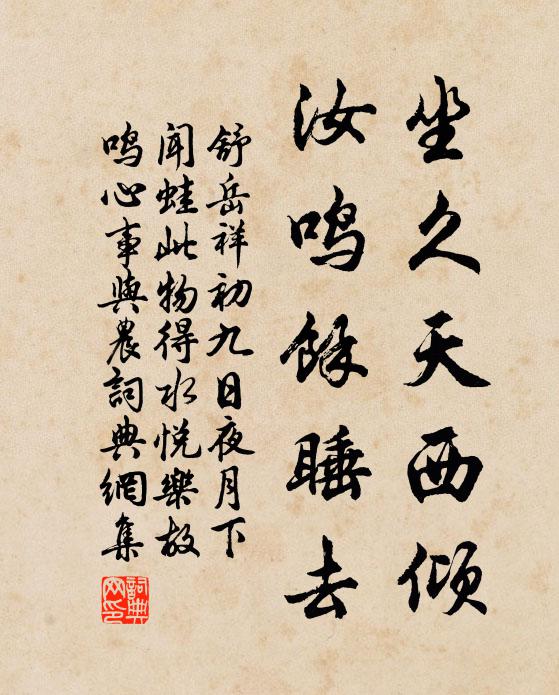 坐久天西倾
汝鸣馀睡去
舒岳祥初九日夜月下
闻蛙此物得水悦樂故
鸣心事與農詞典網集
詞典
网印